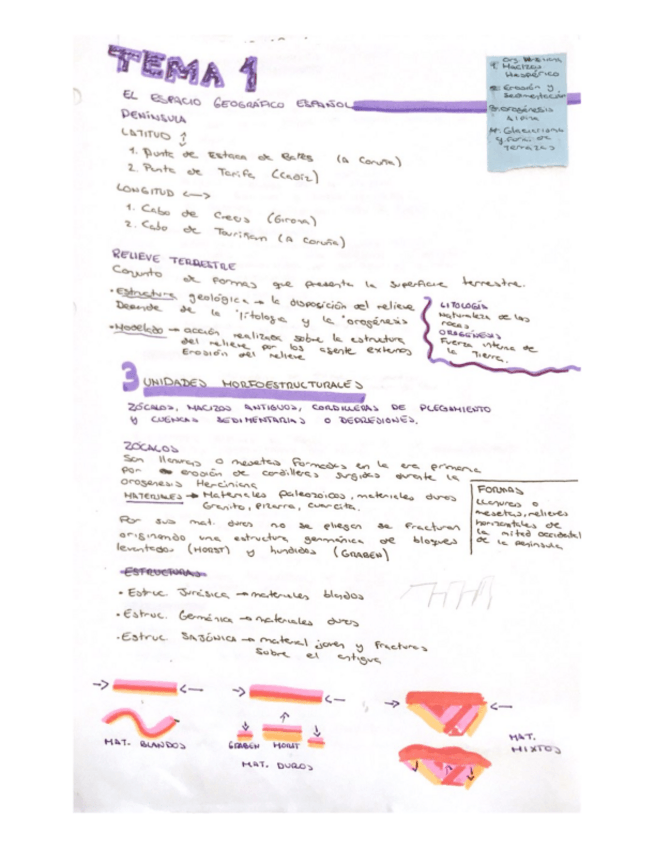 TEMA 1
EL ESPACIO GEOGRÁFICO ESPAÑOL
PENÍNSULA
LATITUD ↕
1. Punta de Estaca de Bares (A Coruña)
2. Punta de Tarifa (Cádiz)
LONGITUD <—>
1. Cabo de Creus (Girona)
2. Cabo de Touriñan (A Coruña)
Macizo
Hespérico
Erosión y
sedimentación
Orogénesis
Alpina
Glaciarismo
terrazas
RELIEVE TERRESTRE
Conjunto de formas que presenta la superficie terrestre.
• Estructura geológica → la disposición del relieve
Depende de la litología y la orogénesis
• Modelado → acción realizada sobre la estructura
del relieve por los agente externos
Erosión del relieve
LITOLOGÍA
Naturaleza de las
rocas.
OROGÉNESIS
Fuerza interna de
la Tierra.
3 UNIDADES MORFOESTRUCTURALES
ZÓCALOS, MACIZOS ANTIGUOS, CORDILLERAS DE PLEGAMIENTO
Y CUENCAS SEDIMENTARIAS O DEPRESIONES.
ZÓCALOS
Son llanuras o mesetas formadas en la era primaria
por erosión de cordilleras surgidas durante la
orogenesis Herciniana
MATERIALES → Materiales paleozoicos, materiales duros
Granito, pizarra, cuarcita.
Por sus mat. duros no se pliegan se fracturan
originando una estructura germánica de bloques
levantados (HORST) y hundidos (GRABEN)
FORMAS
Llanuras o
mesetas, relieves
horizontales de
la mitad occidental
de la península
ESTRUCTURAS
• Estruc. Jurásica → materiales blandos
• Estruc. Germánica → materiales duros
• Estruc. SAJÓNICA → material joven y fracturas
sobre el antigua
MAT. BLANDOS
GRABEN HORST
MAT. DUROS
MAT.
MIXTOS